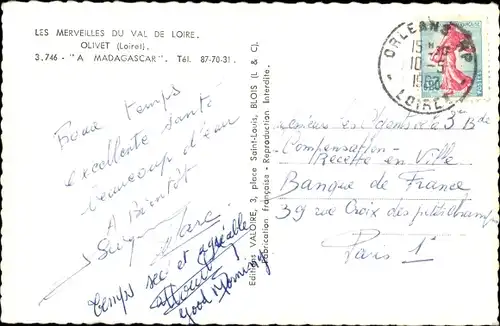 LES MERVEILLES DU VAL DE LOIRE.
OLIVET (Loiret).
3.746 - "A MADAGASCAR". Tél. 87-70-31.
temps
excellente santé
beaucoup d'eau
A Bientôt
Marc
temps sec et agréable
Good Morning
Editions VALOIRE, 3, place Saint-Louis, BLOIS (L & C).
Fabrication Française - Reproduction Interdite.
ORLEANS
LOIRET
POSTES
Compensation
Recette en Ville
Banque de France
39 rue Croix des petits champs
Paris 1